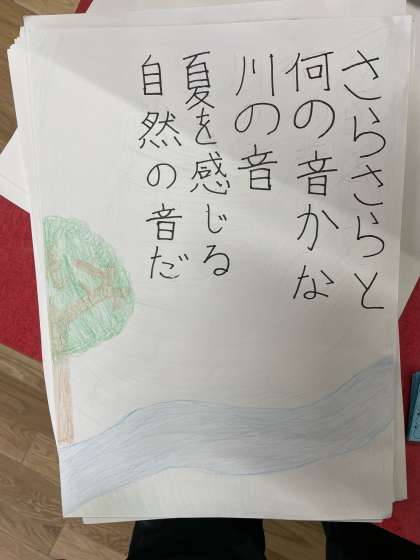 さらさらと
何の音かな
川の音
夏を感じる
自然の音だ